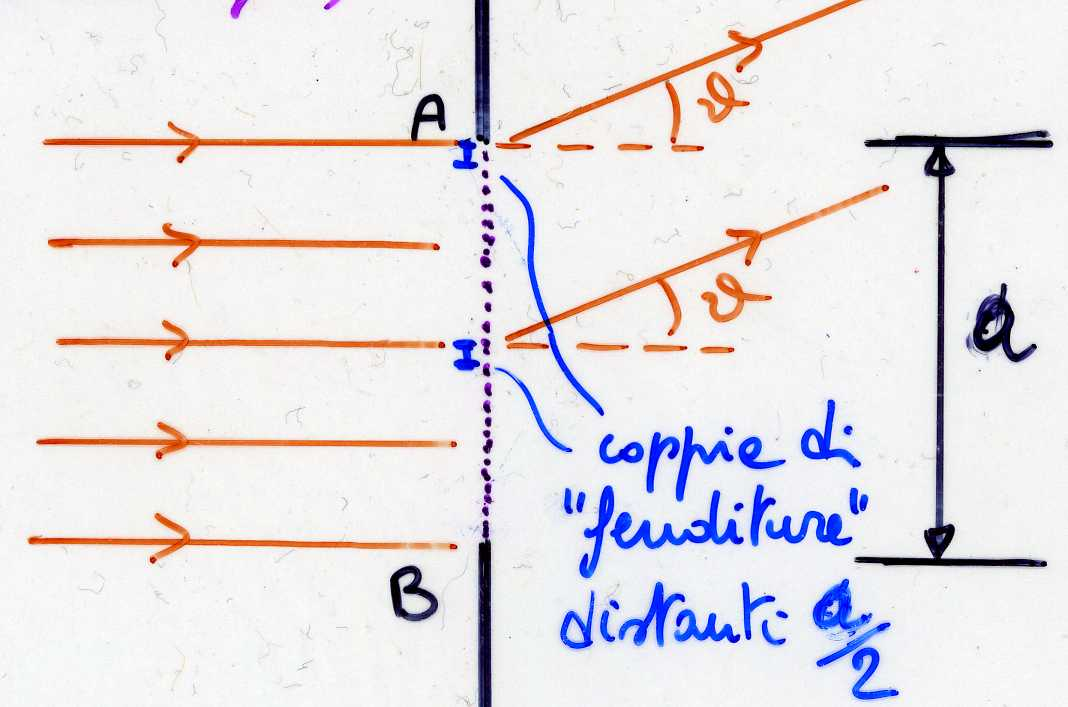 A
ϑ
ϑ
a
coppie di
"fenditure"
distanti a/2
B